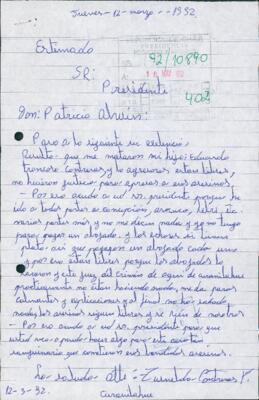 Jueves - 12 - marzo - - 1992
Estimado
92/10890
16 MAR 92
SR:
Presidente
402
Don: Patricio Alwin:
Paso a lo siguiente su excelencia,
Resulta que me mataron mi hijo: Eduardo
Troncoso Contreras, y los agresores estan libres,
no hicieron justicia para apresar a sus asesinos
- Por eso acudo a ud sr. presidente porque he
ido a todas partes a concepcion, arauco, lebu,
varias partes más y no me dicen nada y yo no tengo
para pagar un abogado. y los echores si tienen
plata, asi que pagaron un abogado cada uno
y por eso estan libres porque los abogados lo
sacaron y este juez del crimen de aqui de curanilahue
practicamente no estan haciendo nada, me da puras
calmantes y esplicaciones y al final no hay nada
nada, los asesinos siguen libres y se rien de nosotros
- Por eso acudo a ud sr. presidente para que
usted vea o pueda hacer algo para este acto tan
sanguinario que cometieron esos bandidos asesinos.
Lo saluda Atte -
Contreras
12 - 3 - 92.
Curanilahue